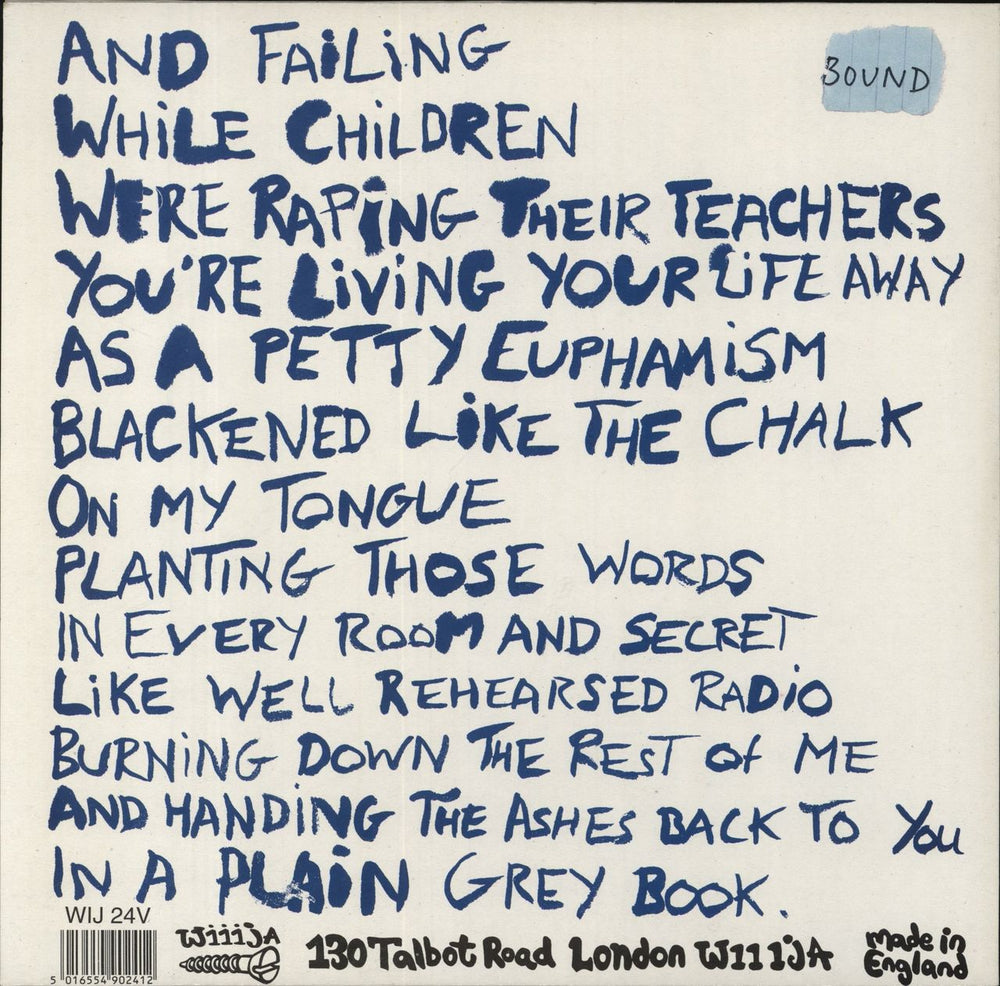 AND FAiLiNG
3OUND
WHiLE CHiLDREN
WERE RAPiNG THEIR TEACHERS
YOU'RE LiViNG YOUR LiFE AWAY
AS A PETTY EUPHAMiSM
BLACKENED LiKE THE CHALK
ON MY TONGUE
PLANTING THOSE WORDS
IN EVERY ROOM AND SECRET
LiKE WELL REHEARSED RADiO
BURNiNG DOWN THE REST Of ME
AND HANDING THE ASHES BACK TO YOU
IN A PLAiN GREY BOOK.
WIJ 24V
5 016554 902412
WiiiJA
130 Talbot Road London W111JA
made in
England